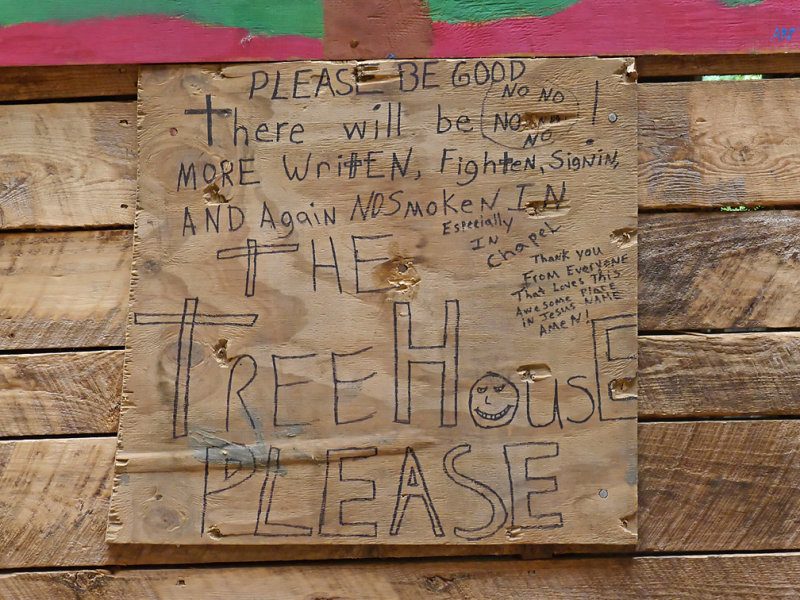 PLEASE BE GOOD
There will be NO NO NO NO NO !.
MORE WrittEN, Fighten, Signin,
AND Again NOSmoken IN
Especially
IN
Chapel
THE
Thank you
From Everyone
That Loves This
Awesome Place
in Jesus Name
Amen!
TREEHOUSE
PLEASE